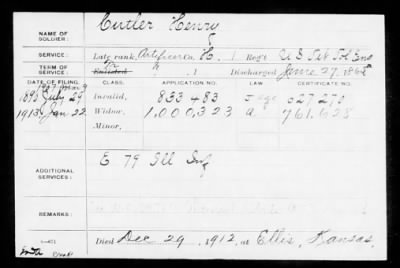 NAME OF SOLDIER: Cutler Henry
SERVICE: Late rank, Artificer Co. H, 1 Reg't U S Vet Vol Eng
TERM OF SERVICE: Enlisted , 1 Discharged June 27, 186
DATE OF FILING. CLASS. APPLICATION NO. LAW CERTIFICATE NO.
1890 July 29 Invalid, 833483 527273
1913 Jan 22 Widow, 1,000,323 a. 761,638
Minor,
ADDITIONAL SERVICES: E 79 Ill Inf
REMARKS:
Died Dec 29, 1912, at Ellis, Kansas,